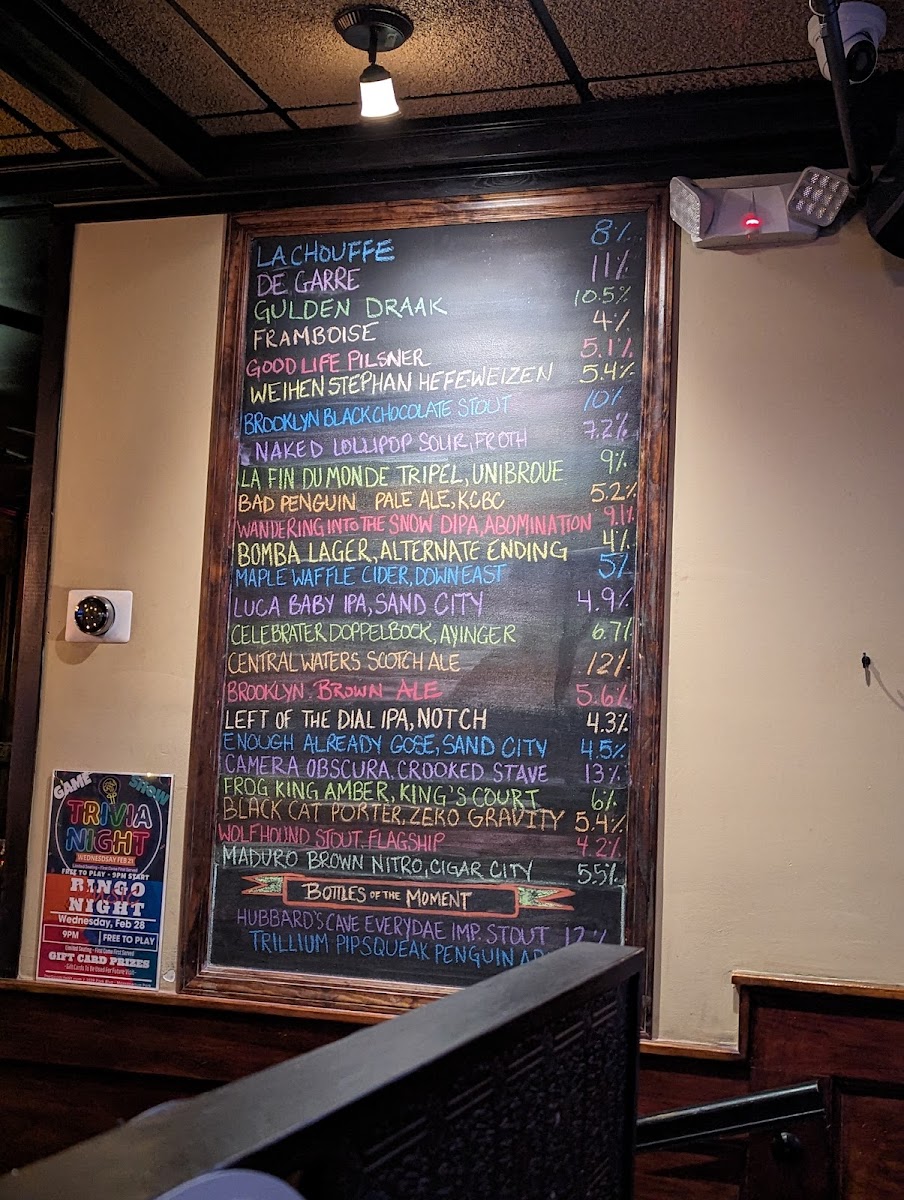 LA CHOUFFE 8%
DE GARRE 11%
GULDEN DRAAK 10.5%
FRAMBOISE 4%
GOOD LIFE PILSNER 5.1%
WEIHENSTEPHAN HEFE-WEIZEN 5.4%
BROOKLYN BLACK CHOCOLATE STOUT 10%
NAKED LOLLIPOP SOUR, FROTH 7.2%
LA FIN DU MONDE TRIPEL, UNIBROUE 9%
BAD PENGUIN PALE ALE, KCBC 5.2%
WANDERING INTO THE SNOW DIPA, ABOMINATION 9.1%
BOMBA LAGER, ALTERNATE ENDING 4%
MAPLE WAFFLE CIDER, DOWNEAST 5%
LUCA BABY IPA, SAND CITY 4.9%
CELEBRATER DOPPELBOCK, AYINGER 6.7%
CENTRAL WATERS SCOTCH ALE 12%
BROOKLYN BROWN ALE 5.6%
LEFT OF THE DIAL IPA, NOTCH 4.3%
ENOUGH ALREADY GOSE, SAND CITY 4.5%
CAMERA OBSCURA, CROOKED STAVE 13%
FROG KING AMBER, KING'S COURT 6%
BLACK CAT PORTER, ZERO GRAVITY 5.4%
WOLFHOUND STOUT, FLAGSHIP 4.2%
MADURO BROWN NITRO, CIGAR CITY 5.5%
BOTTLES OF THE MOMENT
HUBBARD'S CAVE EVERYDAE IMP. STOUT 12%
TRILLIUM PIPSQUEAK PENGUIN
GAME SHOW
TRIVIA
NIGHT
WEDNESDAY FEB 21
Limited Seating - First Come First Served
FREE TO PLAY - 9PM START
BINGO
NIGHT
Wednesday, Feb 28
9PM FREE TO PLAY
Limited Seating - First Come First Served
GIFT CARD PRIZES
-Gift Cards To Be Redeemed For Future Visit-